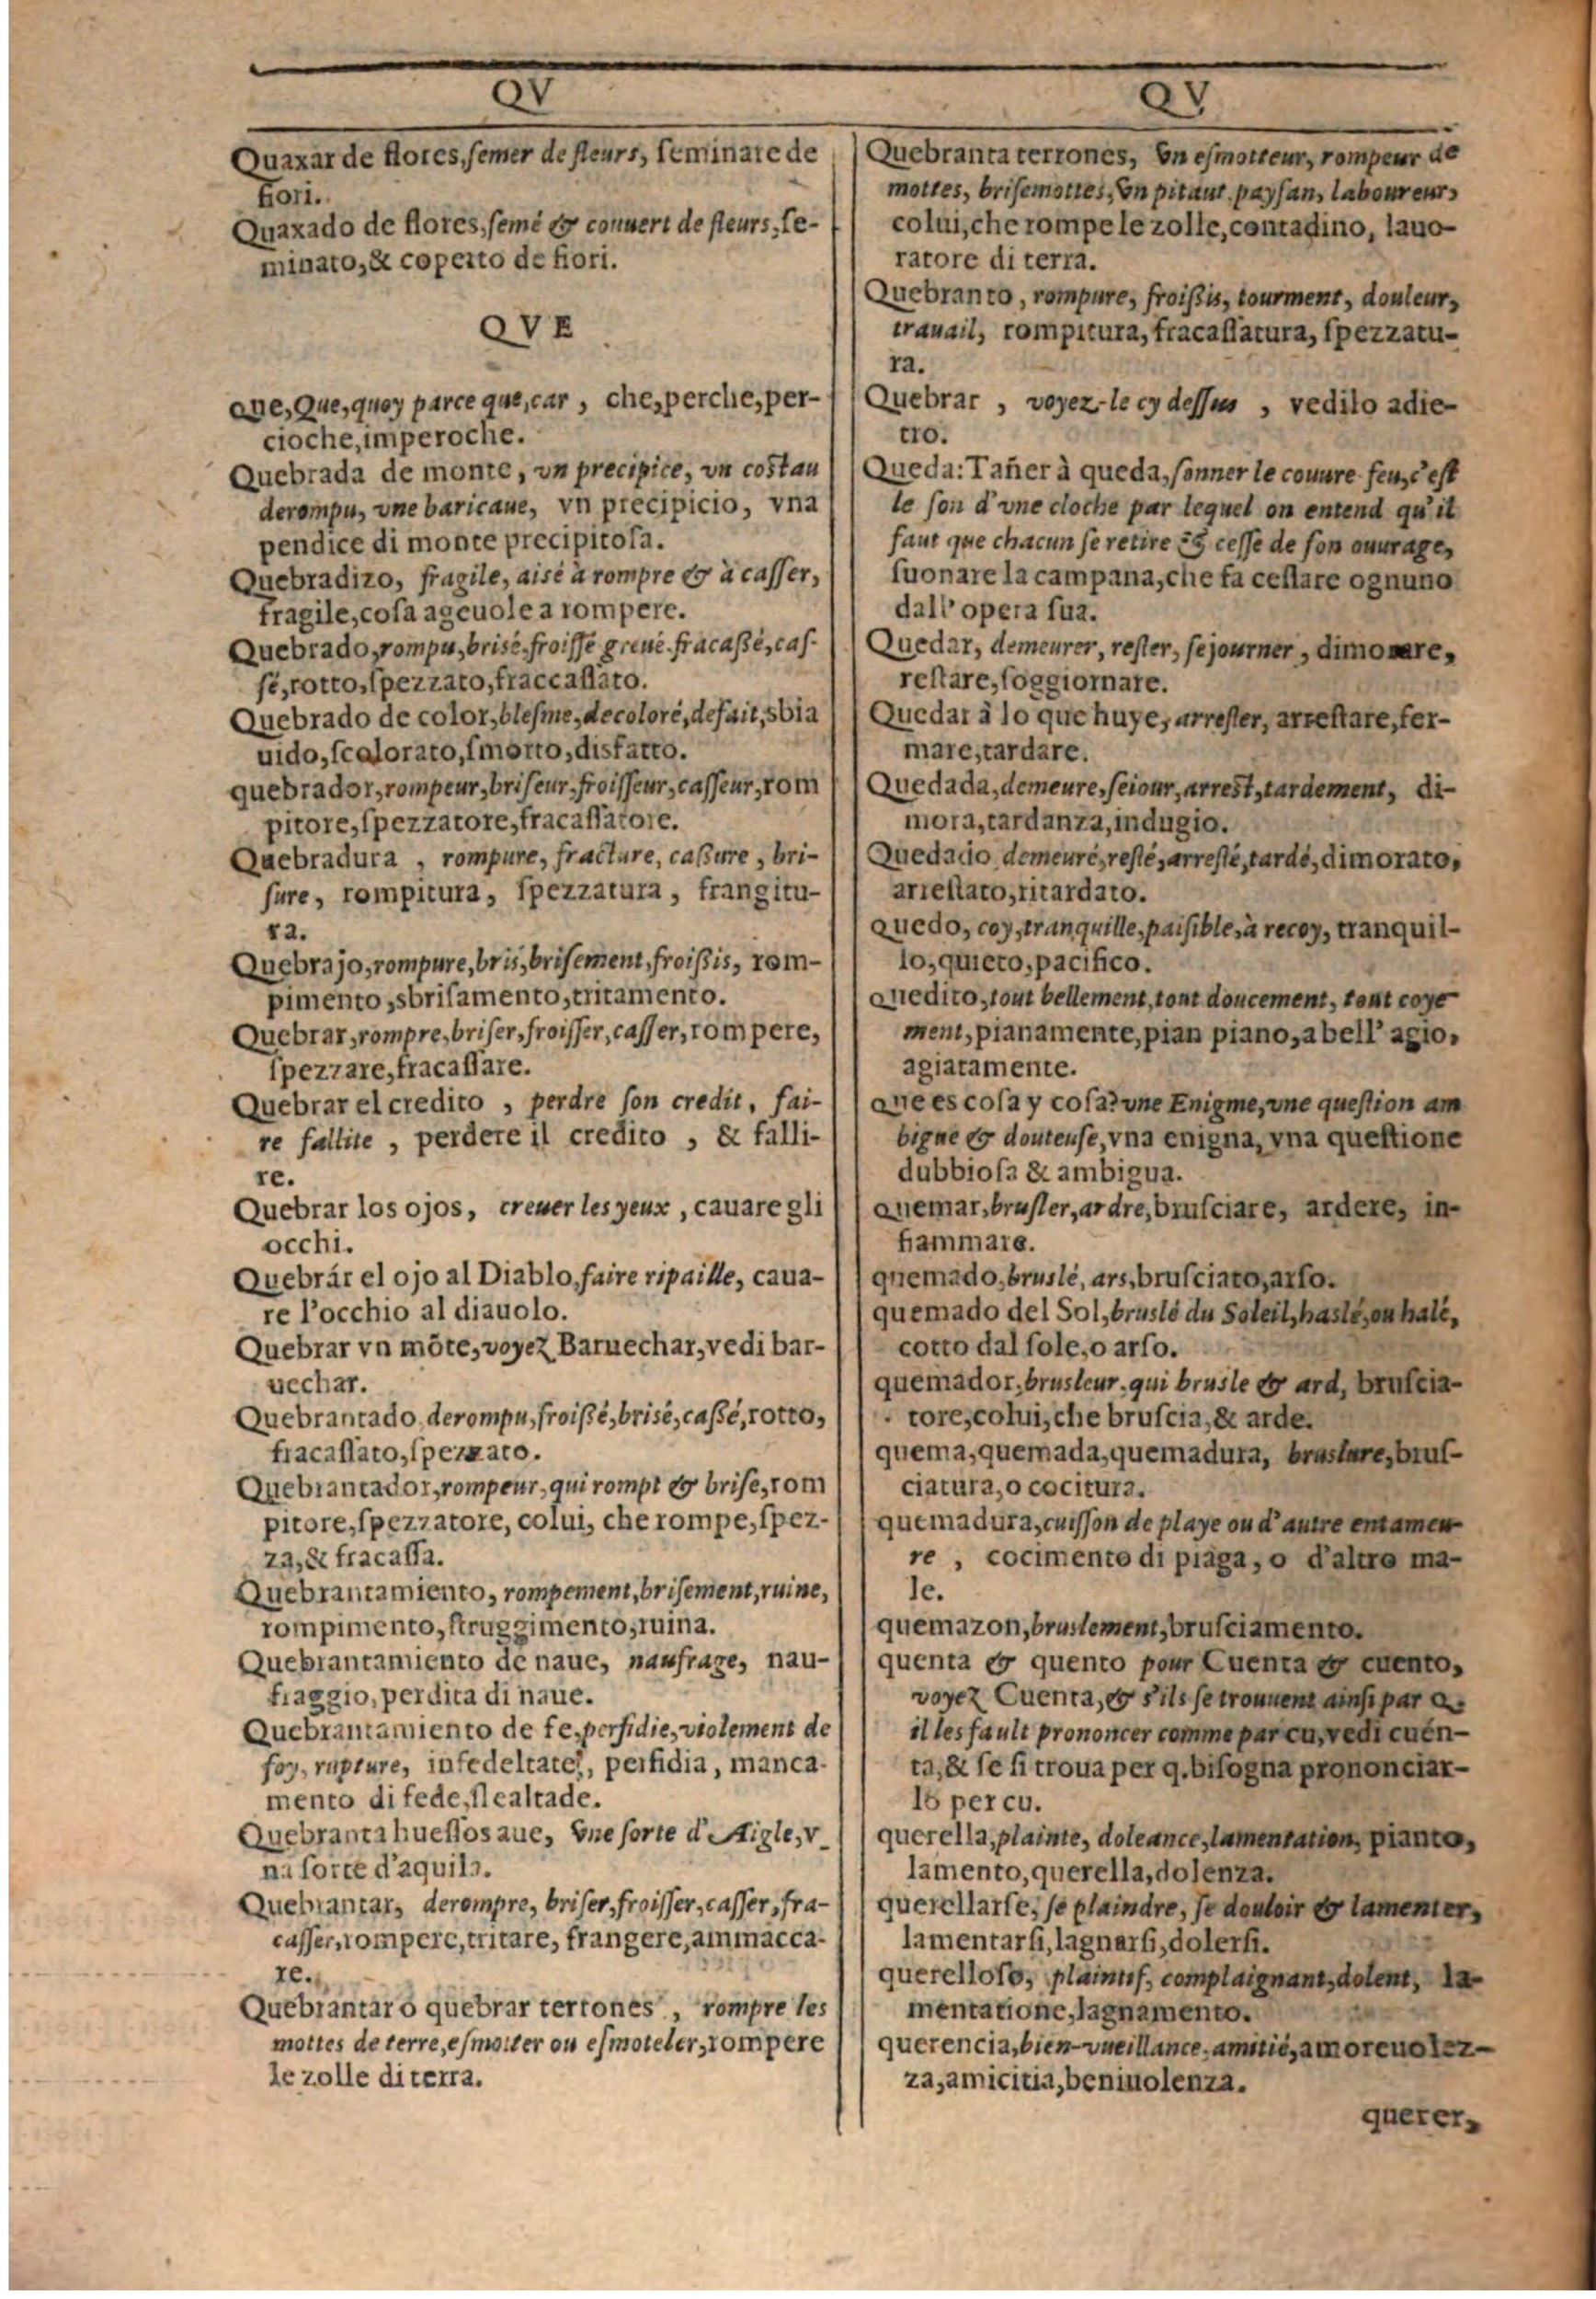 QV
Quaxar de flores, ſemer de fleurs, ſeminare de
fiori.
Quaxado de flores, ſemé & couuert de fleurs, ſe-
minato, & coperto de fiori.
QVE
Que, Que, quoy parce que, car , che, perche, per-
cioche, imperoche.
Quebrada de monte, vn precipice, vn coſtau
derompu, vne baricaue, vn precipicio, vna
pendice di monte precipitoſa.
Quebradizo, fragile, aisé à rompre & à caſſer,
fragile, coſa ageuole a rompere.
Quebrado, rompu, brisé, froiſſé greué fracaßé, caſ-
ſé, rotto, ſpezzato, fraccaſſato.
Quebrado de color, bleſme, decoloré, defait, sbia
uido, ſcolorato, ſmorto, disfatto.
quebrador, rompeur, briſeur, froiſſeur, caſſeur, rom
pitore, ſpezzatore, fracaſſatore.
Quebradura , rompure, fracture, caßure , bri-
ſure, rompitura, ſpezzatura, frangitu-
ra.
Quebrajo, rompure, bris, briſement, froißis, rom-
pimento, sbriſamento, tritamento.
Quebrar, rompre, briſer, froiſſer, caſſer, rompere,
ſpezzare, fracaſſare.
Quebrar el credito , perdre ſon credit, fai-
re fallite , perdere il credito , & falli-
re.
Quebrar los ojos, creuer les yeux , cauare gli
occhi.
Quebrár el ojo al Diablo, faire ripaille, caua-
re l'occhio al diauolo.
Quebrar vn mõte, voyez Baruechar, vedi bar-
uechar.
Quebrantado derompu, froißé, brisé, caßé, rotto,
fracaſſato, ſpezzato.
Quebrantador, rompeur, qui rompt & briſe, rom
pitore, ſpezzatore, colui, che rompe, ſpez-
za, & fracaſſa.
Quebrantamiento, rompement, briſement, ruine,
rompimento, ſtruggimento, ruina.
Quebrantamiento de naue, naufrage, nau-
fraggio, perdita di naue.
Quebrantamiento de fe, perfidie, violement de
foy, rupture, infedeltate, perfidia, manca-
mento di fede, ſlealtade.
Quebranta hueſſos aue, vne ſorte d'Aigle, v_
na ſorte d'aquila.
Quebrantar, derompre, briſer, froiſſer, caſſer, fra-
caſſer, rompere, tritare, frangere, ammacca-
re.
Quebrantar o quebrar terrones , rompre les
mottes de terre, eſmotter ou eſmoteler, rompere
le zolle di terra.
QV
Quebranta terrones, vn eſmotteur, rompeur de
mottes, briſemottes, vn pitaut payſan, laboureur,
colui, che rompe le zolle, contadino, lauo-
ratore di terra.
Quebranto , rompure, froißis, tourment, douleur,
trauail, rompitura, fracaſſatura, ſpezzatu-
ra.
Quebrar , voyez-le cy deſſus , vedilo adie-
tro.
Queda: Tañer à queda, ſonner le couure-feu, c'eſt
le ſon d'vne cloche par lequel on entend qu'il
faut que chacun ſe retire & ceſſe de ſon ouurage,
ſuonare la campana, che fa ceſſare ognuno
dall'opera ſua.
Quedar, demeurer, reſter, ſejourner , dimorare,
reſtare, ſoggiornare.
Quedar à lo que huye, arreſter, arreſtare, fer-
mare, tardare.
Quedada, demeure, ſeiour, arreſt, tardement, di-
mora, tardanza, indugio.
Quedado demeuré, reſté, arreſté, tardé, dimorato,
arreſtato, ritardato.
Quedo, coy, tranquille, paiſible, à recoy, tranquil-
lo, quieto, pacifico.
Quedito, tout bellement, tout doucement, tout coye
ment, pianamente, pian piano, a bell'agio,
agiatamente.
Que es coſa y coſa? vne Enigme, vne queſtion am
bigue & douteuſe, vna enigna, vna queſtione
dubbioſa & ambigua.
Quemar, bruſler, ardre, bruſciare, ardere, in-
fiammare.
quemado, bruslé, ars, bruſciato, arſo.
quemado del Sol, bruslé du Soleil, haslé, ou halé,
cotto dal ſole, o arſo.
quemador, brusleur, qui brusle & ard, bruſcia-
tore, colui, che bruſcia, & arde.
quema, quemada, quemadura, bruslure, bruſ-
ciatura, o cocitura.
quemadura, cuiſſon de playe ou d'autre entameu-
re , cocimento di piaga, o d'altro ma-
le.
quemazon, bruslement, bruſciamento.
quenta & quento pour Cuenta & cuento,
voyez Cuenta, & s'ils ſe trouuent ainſi par Q.
il les fault prononcer comme par cu, vedi cuen-
ta, & ſe ſi troua per q. biſogna prononciar-
lo per cu.
querella, plainte, doleance, lamentation, pianto,
lamento, querella, dolenza.
querellarſe, ſe plaindre, ſe douloir & lamenter,
lamentarſi, lagnarſi, dolerſi.
querelloſo, plaintif, complaignant, dolent, la-
mentatione, lagnamento.
querencia, bien-vueillance, amitié, amoreuolez-
za, amicitia, beniuolenza.
querer,